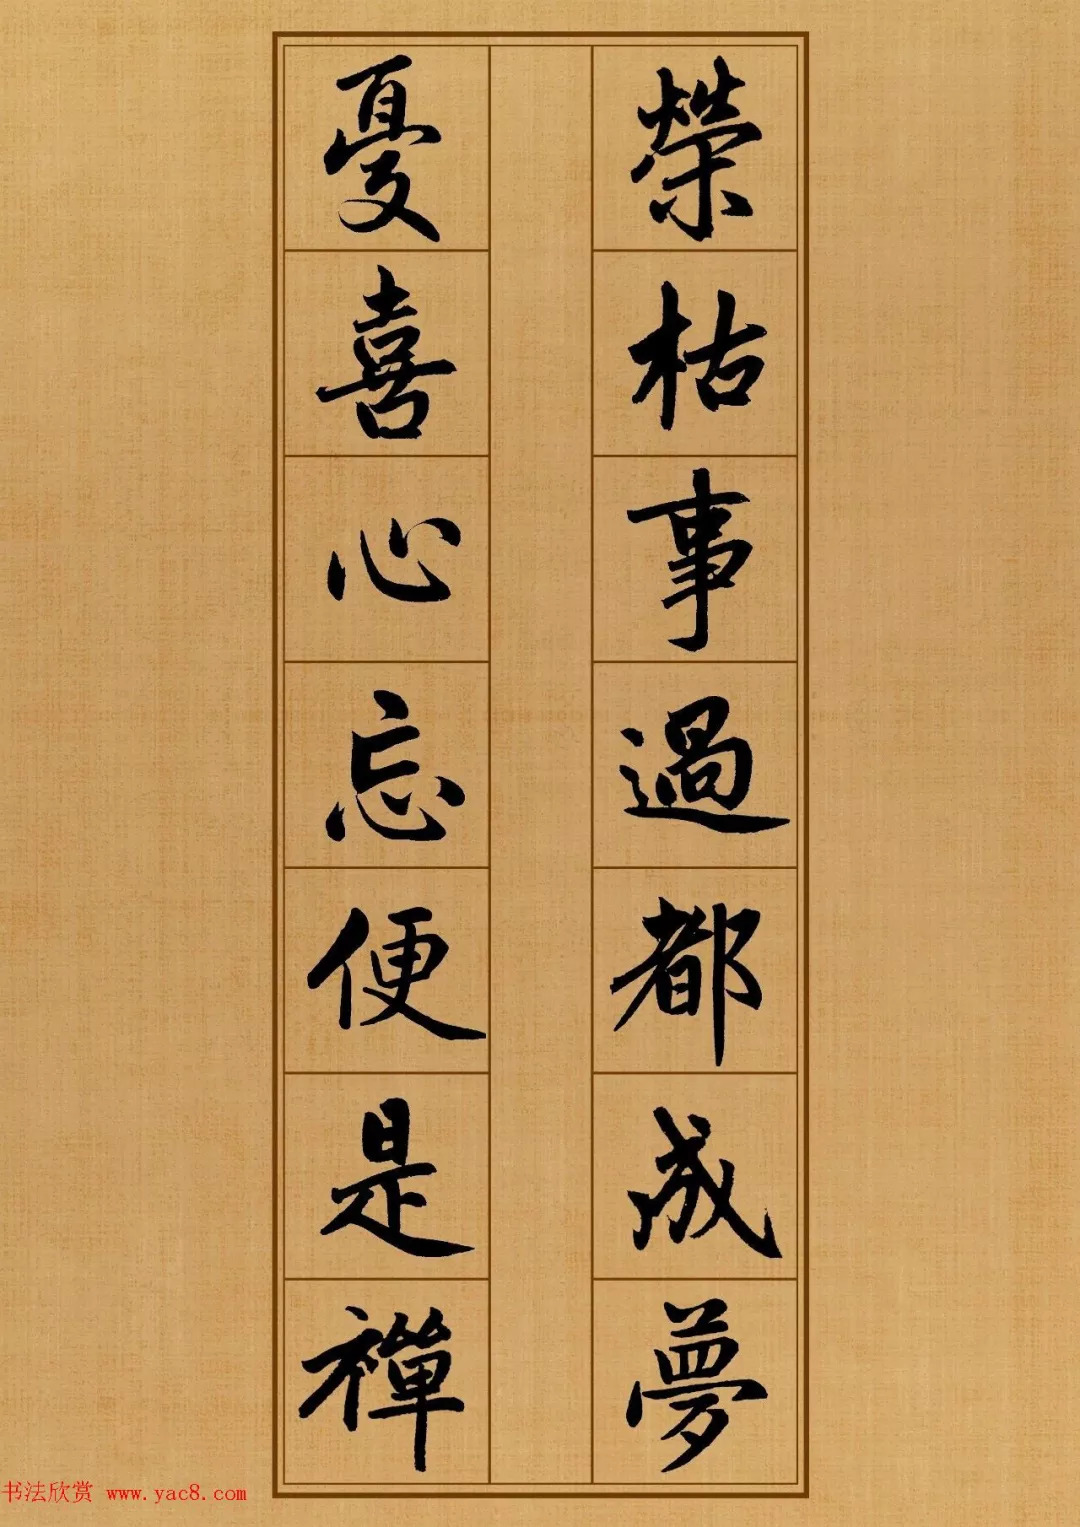 榮枯事過都成夢
憂喜心忘便是禪
书法欣赏 www.yac8.com